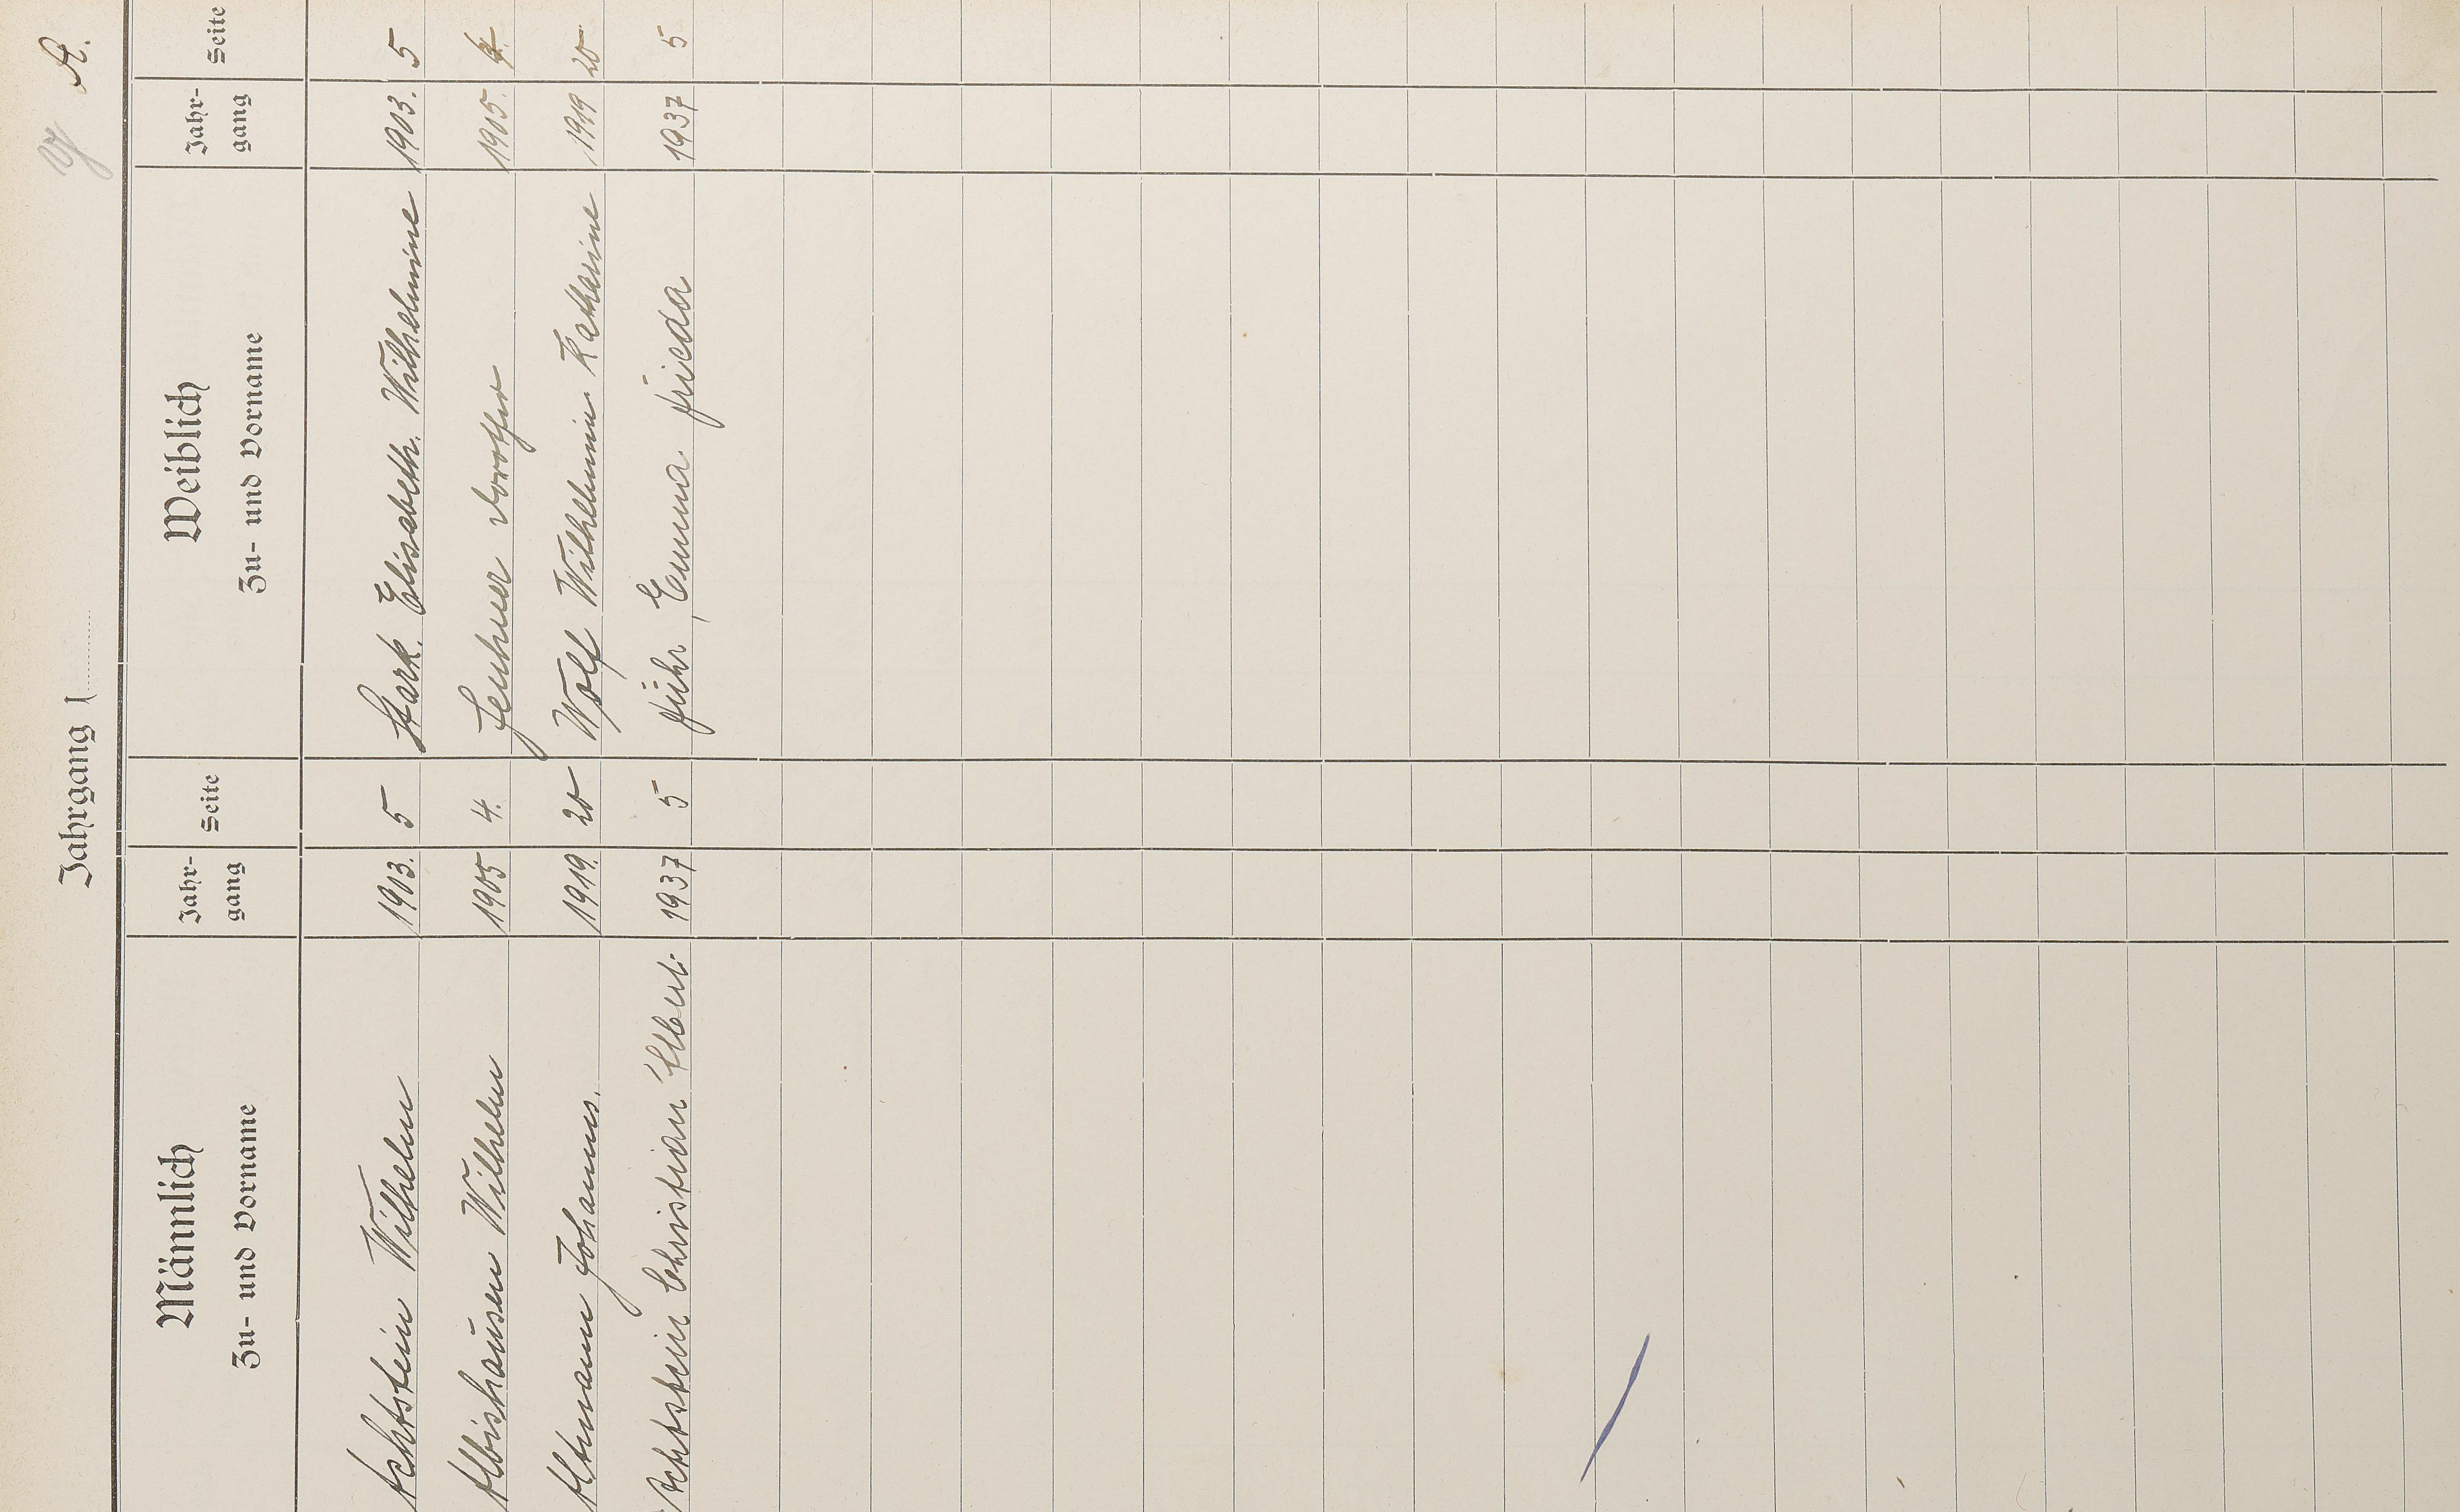 A.
Jahrgang 1
Männlich
Zu- und Vorname
Jahr-
gang
Seite
Weiblich
Zu- und Vorname
Jahr-
gang
Seite
Achtstein Wilhelm 1903. 5 Stark. Elisabeth. Wilhelmine 1903. 5
Albishausen Wilhelm 1905 4. Fenhner Dorothea 1905. 4.
Altmann Johannes. 1919. 20 Wolf Wilhelmine Katherine 1919 20
Achtstein Christian Albert 1937 5 Führ, Emma Frieda 1937 5